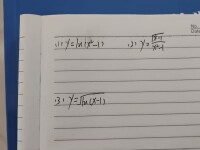 (1) y=ln(x²-1) (2) y=√(x-1)/(x²-1)
(3) y=√ln(x-1)